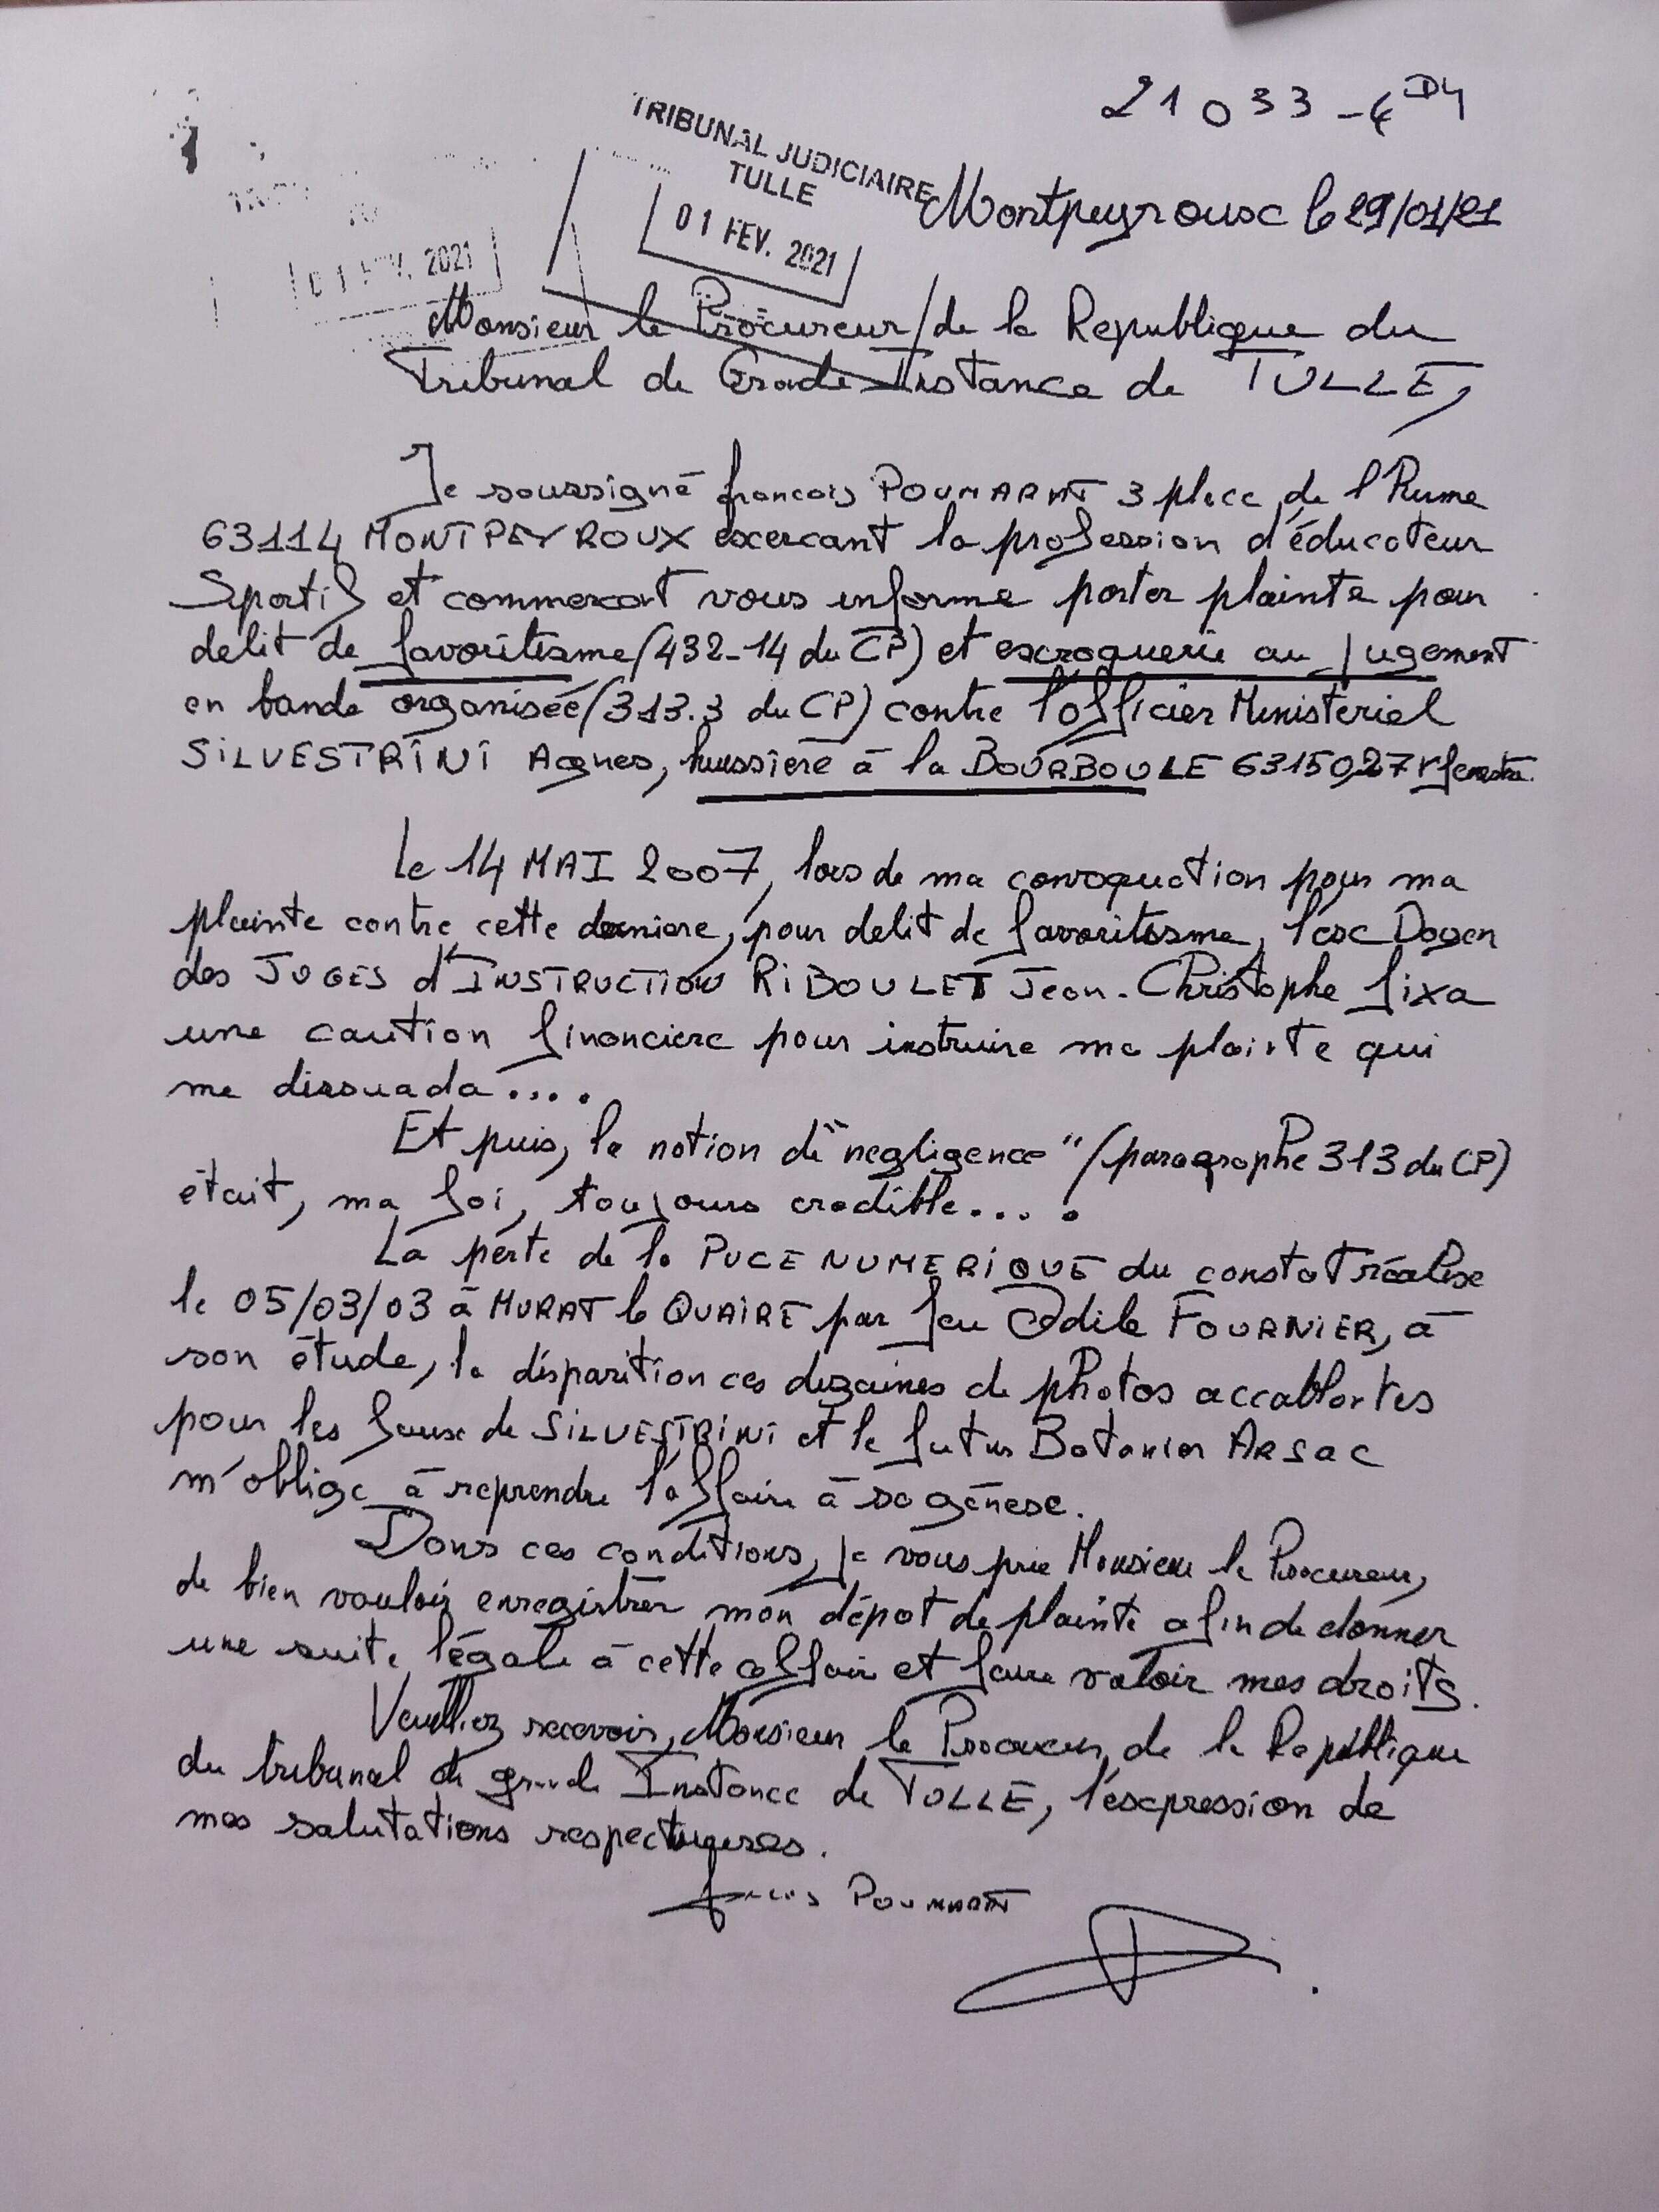 21033-4 D4
TRIBUNAL JUDICIAIRE
TULLE
01 FEV. 2021
01 FEV. 2021
Montpeyroux le 29/01/21
Monsieur le Procureur de la Republique du
Tribunal de Grade Instance de TULLE,
Je soussigné francois POUMARAT 3 place de l'Rume
63114 MONTPEYROUX excercant la profession d'éducateur
Sportif et commercant vous informe porter plainte pour
delit de favoritisme (432-14 du CP) et escroquerie au jugement
en bande organisée (313.3 du CP) contre l'officier Ministeriel
SILVESTRINI Agnes, huissière à la BOURBOULE 63150, 27 r
Le 14 MAI 2007, lors de ma convoquation pour ma
plainte contre cette derniere, pour delit de favoritisme, l'ex Doyen
des JUGES d'INSTRUCTION RIBOULET Jean-Christophe fixa
une caution financiere pour instruire ma plainte qui
me dissuada....
Et puis, la notion de "negligence" (paragraphe 313 du CP)
était, ma foi, toujours credible....
La perte de la PUCE NUMERIQUE du constat réalise
le 05/03/03 à MURAT le QUAIRE par feu Odile FOURNIER, à
son étude, la disparition ces dizaines de photos accablantes
pour les faux de SILVESTRINI et le futur Batonier ARSAC
m'oblige à reprendre l'affaire à sa génese.
Dans ces conditions, je vous prie Monsieur le Procureur,
de bien vouloir enregistrer mon dépot de plainte afin de donner
une suite légale à cette affair et faire valoir mes droits.
Veuilliez recevoir, Monsieur le Procureur de la République
du tribunal de grande Instance de TULLE, l'expression de
mes salutations respectueuses.
francois POUMARAT